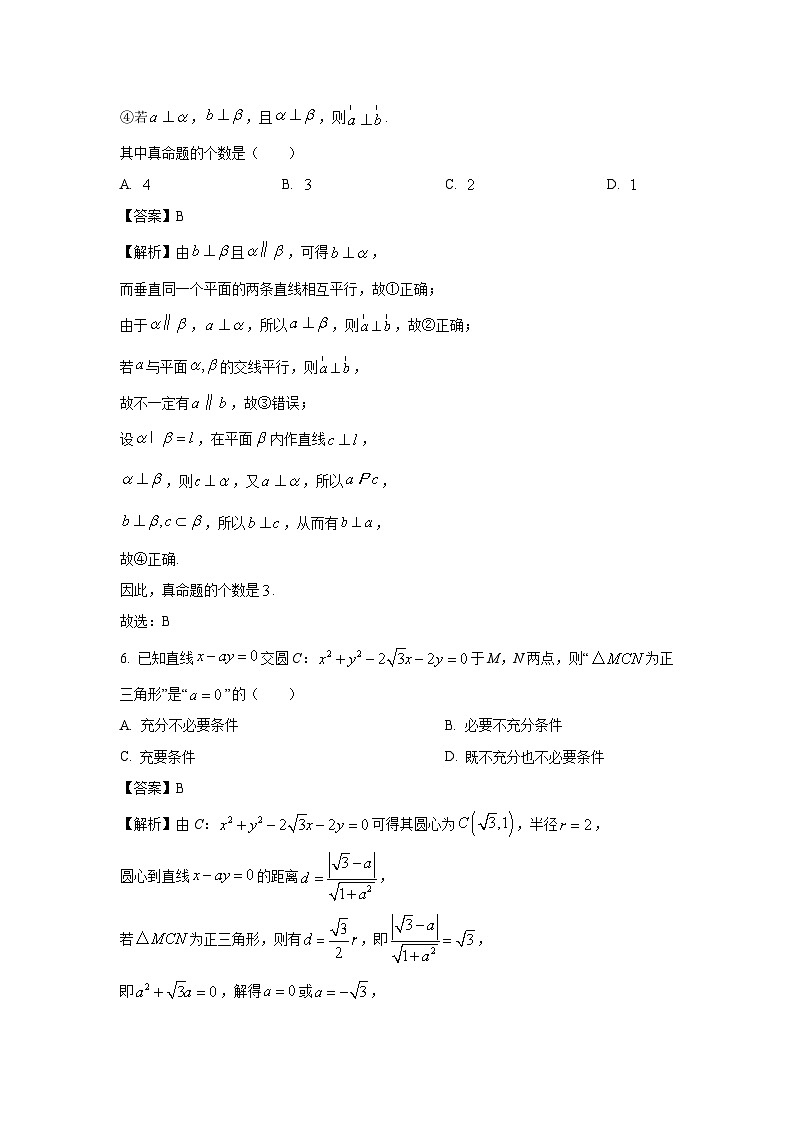 ④若a⊥α,b⊥β,且α⊥β,则a⊥b.
其中真命题的个数是( )
A. 4 B. 3 C. 2 D. 1
【答案】B
【解析】由b⊥β且α∥β,可得b⊥α,
而垂直同一个平面的两条直线相互平行,故①正确;
由于α∥β,a⊥α,所以a⊥β,则a⊥b,故②正确;
若a与平面α,β的交线平行,则a⊥b,
故不一定有a∥b,故③错误;
设α| β=l,在平面β内作直线c⊥l,
α⊥β,则c⊥α,又a⊥α,所以aPc,
b⊥β,c⊂β,所以b⊥c,从而有b⊥a,
故④正确.
因此,真命题的个数是3.
故选:B
6. 已知直线x−ay=0交圆C:x²+y²−2√3x−2y=0于M,N两点,则“△MCN为正
三角形”是“a=0”的( )
A. 充分不必要条件 B. 必要不充分条件
C. 充要条件 D. 既不充分也不必要条件
【答案】B
【解析】由C:x²+y²−2√3x−2y=0可得其圆心为C(√3,1),半径r=2,
圆心到直线x−ay=0的距离d=|√3−a|/√(1+a²),
若△MCN为正三角形,则有d=√3/2 r,即|√3−a|/√(1+a²)=√3,
即a²+√3a=0,解得a=0或a=−√3,